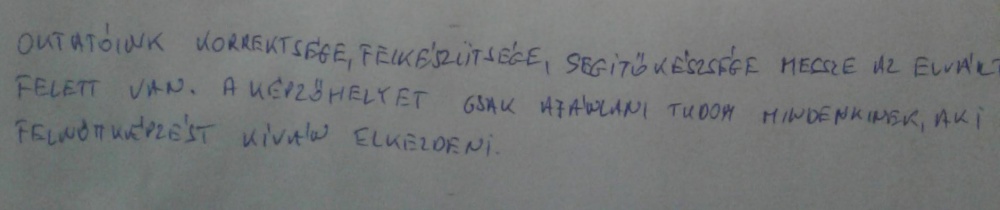 OKTATÓINK KORREKTSÉGE, FELKÉSZÜTSÉGE, SEGÍTŐKÉSZSÉGE MESSZE AZ ELVÁRT
FELETT VAN. A KÉPZŐHELYET CSAK AJÁNLANI TUDOM MINDENKINEK, AKI
FELNŐTTKÉPZÉST KÍVÁN ELKEZDENI.